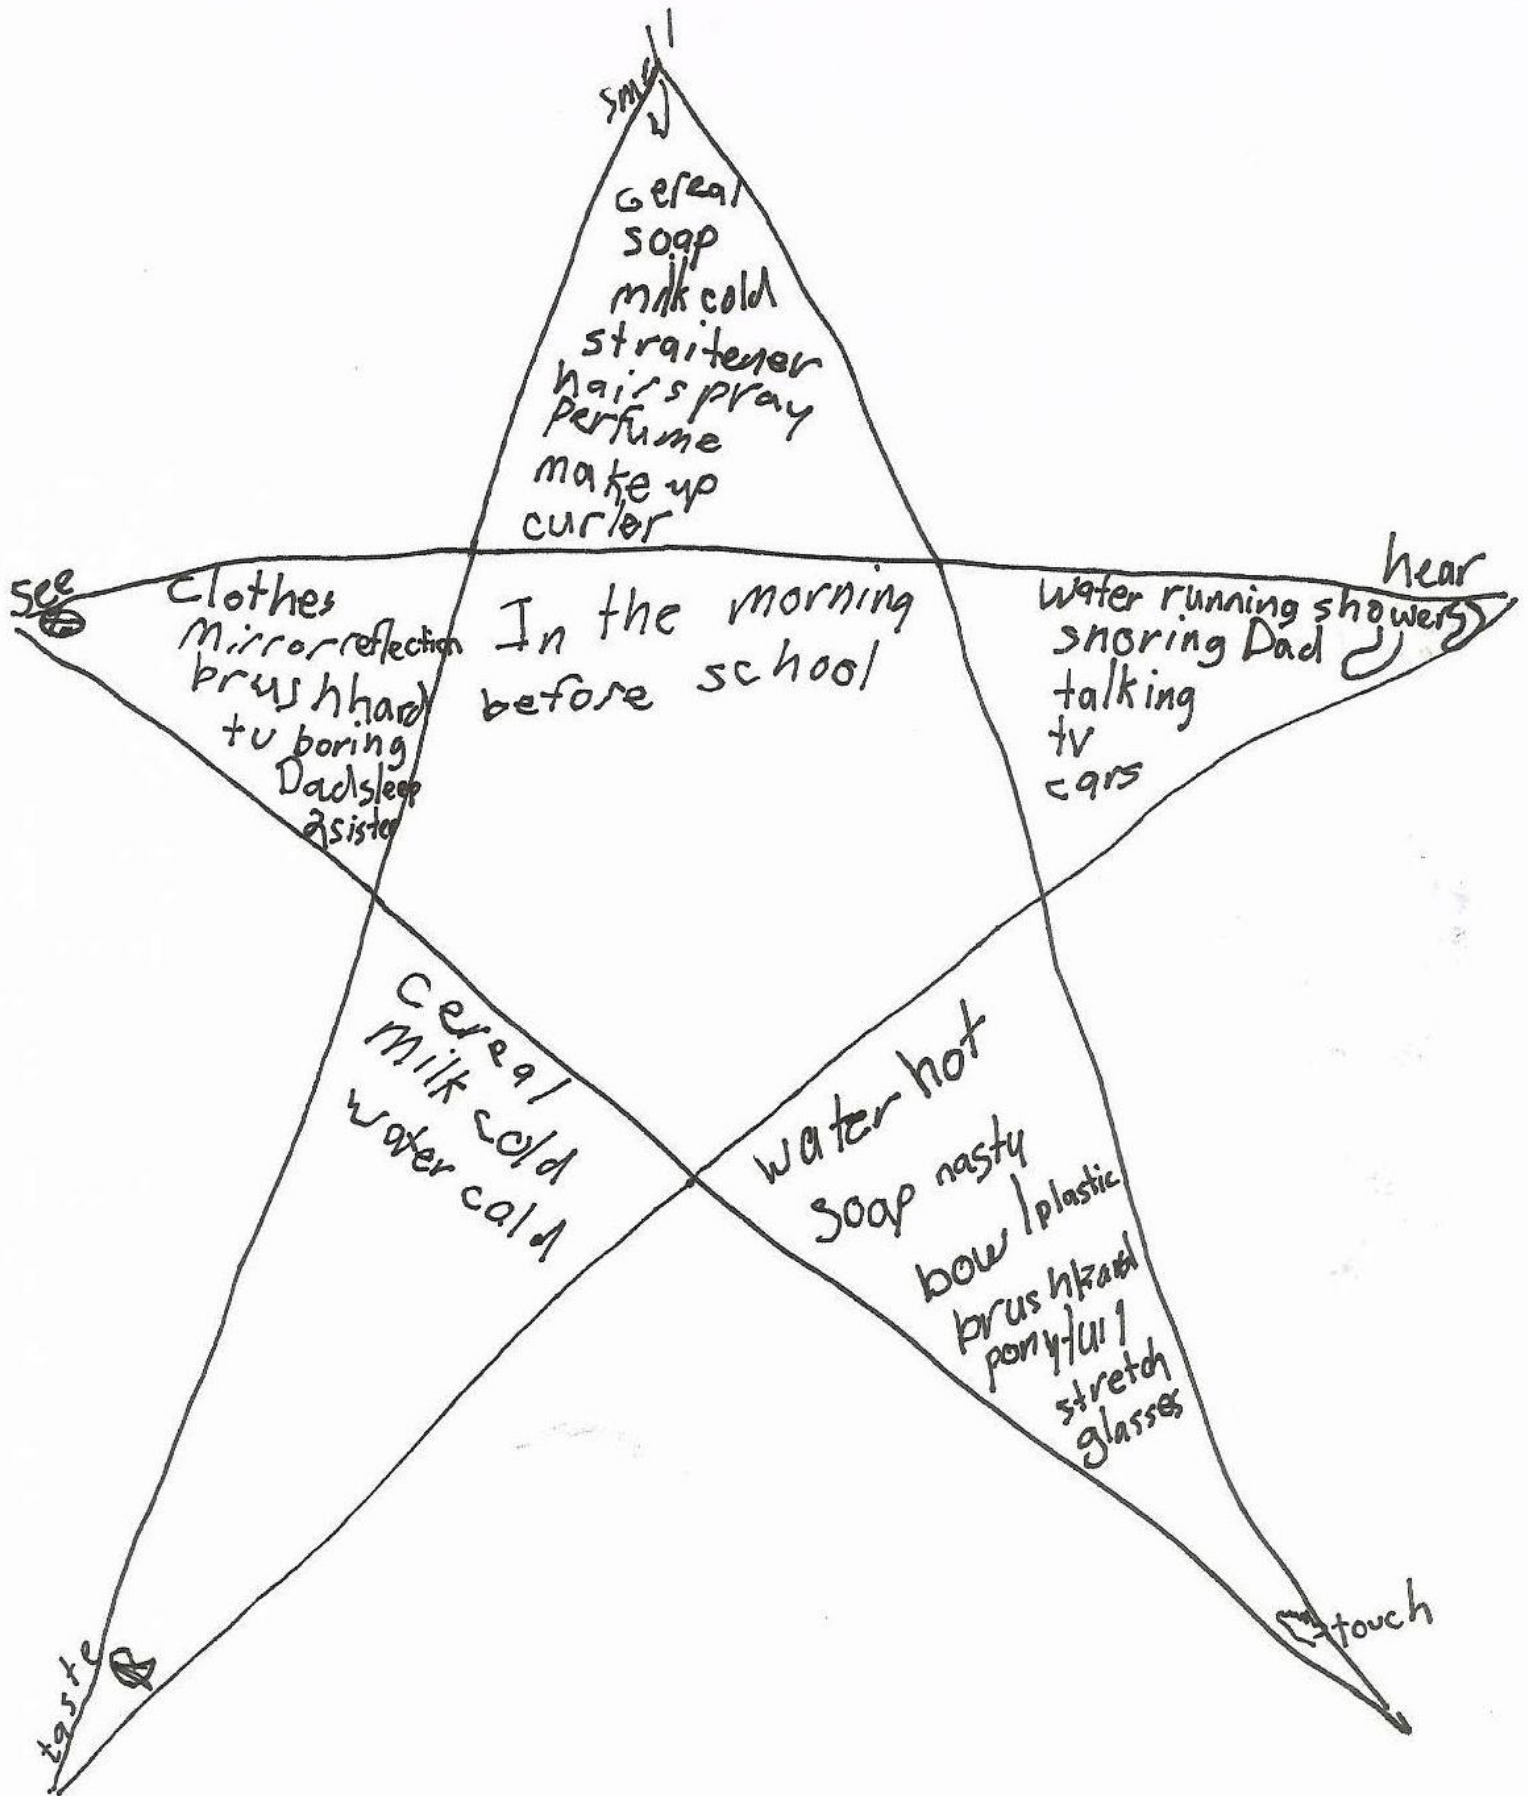 smell
cereal
soap
milk cold
straitener
hairspray
Perfume
make up
curler
see
clothes
Mirror reflection
brush hard
tv boring
Dad sleep
2 sister
In the morning
before school
hear
Water running shower
snoring Dad
talking
tv
cars
cereal
milk cold
water cold
taste
water hot
soap nasty
bowl plastic
brush hard
ponytail
stretch
glasses
touch